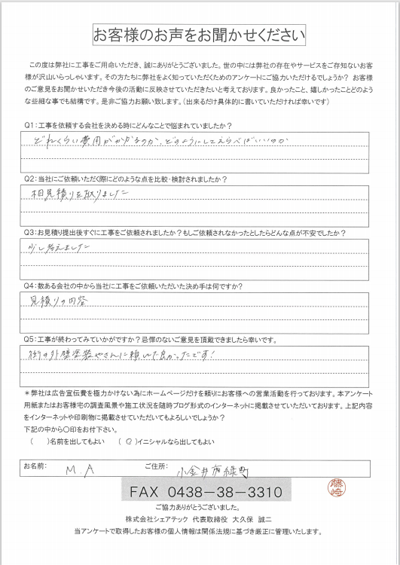 お客様のお声をお聞かせください
この度は弊社に工事をご用命いただき、誠にありがとうございました。世の中には弊社の存在やサービスをご存知ないお客
様が沢山いらっしゃいます。その方たちに弊社をよく知っていただくためのアンケートにご協力いただけるでしょうか？ お客様
のご意見をお聞かせいただき今後の活動に反映させていきたいと考えております。良かったこと、嬉しかったことどのよう
な些細な事でも結構です。是非ご協力お願い致します。（出来るだけ具体的に書いていただければ幸いです）
Q1:工事を依頼する会社を決める時にどんなことで悩まれていましたか？
どれくらい費用がかかるのか、どのようにしてえらべばいいのか
Q2:当社にご依頼いただく際にどのような点を比較・検討されましたか？
相見積りを取りました
Q3:お見積り提出後すぐに工事をご依頼されましたか？もしご依頼されなかったとしたらどんな点が不安でしたか？
少し考えました
Q4:数ある会社の中から当社に工事をご依頼いただいた決め手は何ですか？
見積りの内容
Q5:工事が終わってみていかがですか？忌憚のないご意見を頂戴できましたら幸いです。
街の外壁塗装やさんに頼んで良かったです！
＊弊社は広告宣伝費を極力かけない為にホームページだけを頼りにお客様への営業活動を行っております。本アンケート
用紙またはお客様宅の調査風景や施工状況を随時ブログ形式のインターネットに掲載させていただいております。上記内容
をインターネットや印刷物に掲載させていただいてもよろしいでしょうか？
下記の中から〇印をお付下さい。
（　）名前を出してもよい （○）イニシャルなら出してもよい
お名前: M A ご住所: 小金井市緑町
FAX 0438-38-3310
ご協力ありがとうございました。
株式会社シェアテック 代表取締役 大久保 誠二
当アンケートで取得したお客様の個人情報は関係法規に基づき厳正に管理いたします。